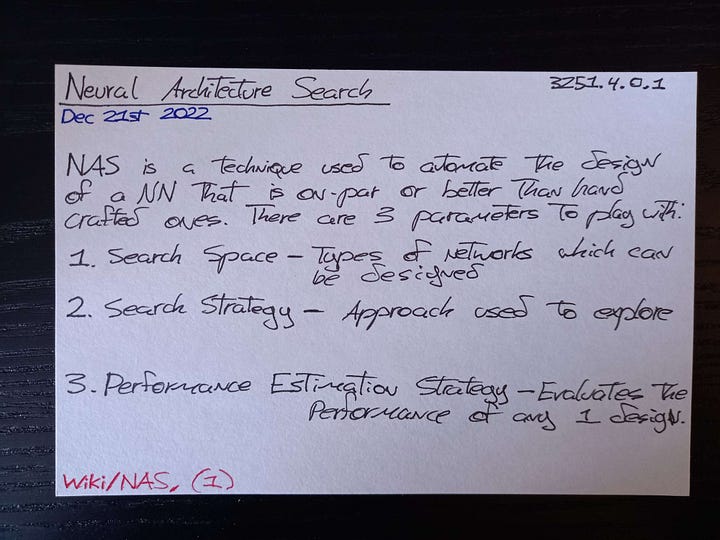 Neural Architecture Search
3251.4.0.1
Dec 21st 2022
NAS is a technique used to automate the design
of a NN that is on-par or better than hand
crafted ones. There are 3 parameters to play with:
1. Search Space - Types of networks which can
be designed
2. Search Strategy - Approach used to explore
3. Performance Estimation Strategy - Evaluates the
Performance of any 1 design.
Wiki/NAS, (1)